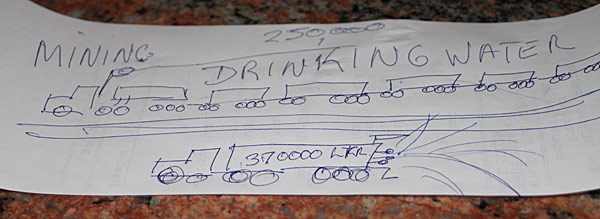 250,000
MINING DRINKING WATER
370000 LTR